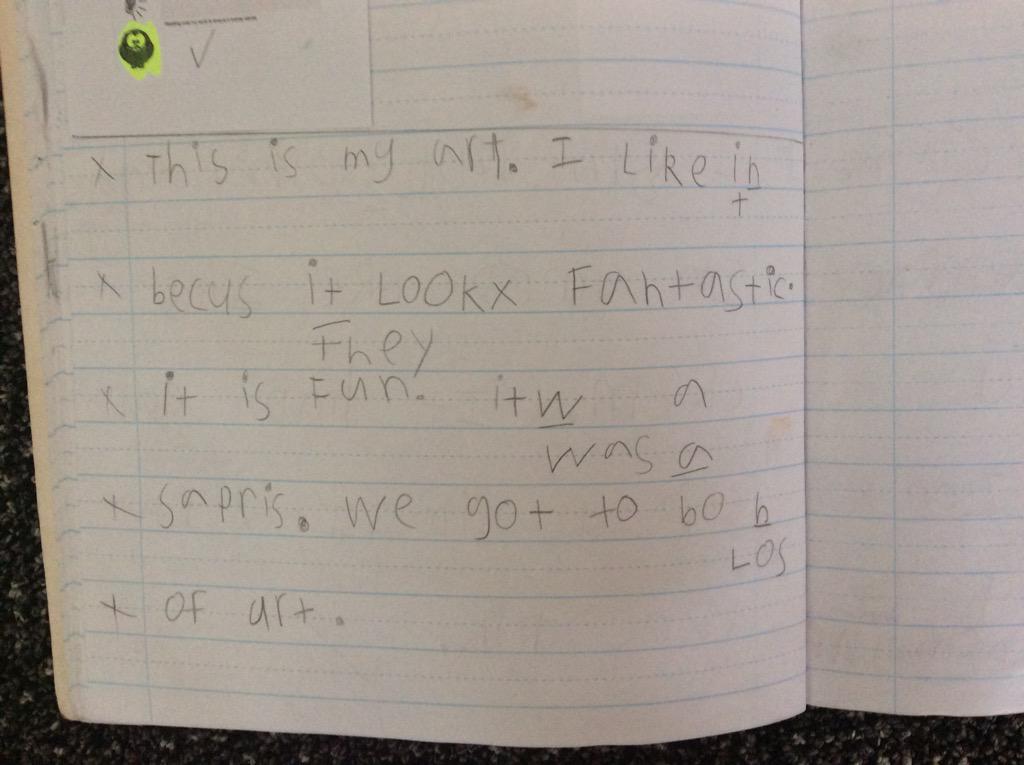 x This is my art. I Like in
t
x becus it LOOkx Fantastic.
They
x it is Fun. itw a
was a
x sapris. we got to bo b
LOS
x OF art.